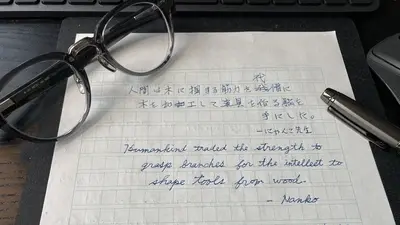 代
人間は木に捕まる筋力を償に
木を加工して道具を作る脳を
手にした。
—にゃんこ先生
Humankind traded the strength to
grasp branches for the intellect to
shape tools from wood.
- Nanko